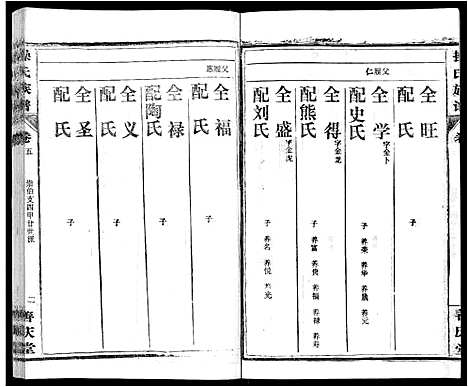 父履仁
全旺
配氏
子
全学 字金卜
配史氏
子 养荣 养华 养晨 养元
全得 字金龙
配熊氏
子 养富 养贵 养福 养禄 养寿
全盛 字金虎
配刘氏
子 养名 养悦 养光
善庆堂
氏族谱
卷五
崇伯支四甲廿世派
二
善庆堂
父履惠
全福
配氏
子
全禄
配陶氏
子
全义
配氏
子
全圣
配氏
子